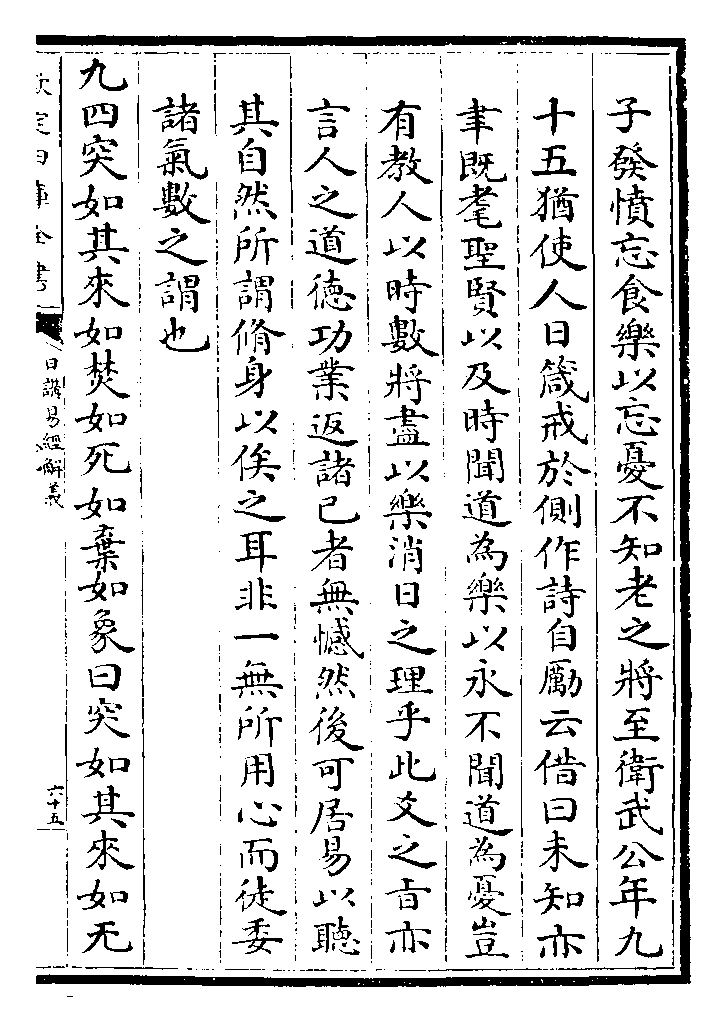 子發憤忘食樂以忘憂不知老之將至衛武公年九
十五猶使人日箴戒於側作詩自勵云借曰未知亦
聿既耄聖賢以及時聞道為樂以永不聞道為憂豈
有教人以時數將盡以樂消日之理乎此爻之旨亦
言人之道德功業返諸己者無憾然後可居易以聽
其自然所謂脩身以俟之耳非一無所用心而徒委
諸氣數之謂也
九四突如其來如焚如死如棄如象曰突如其來如无
欽定四庫全書
日講易經解義
六十五